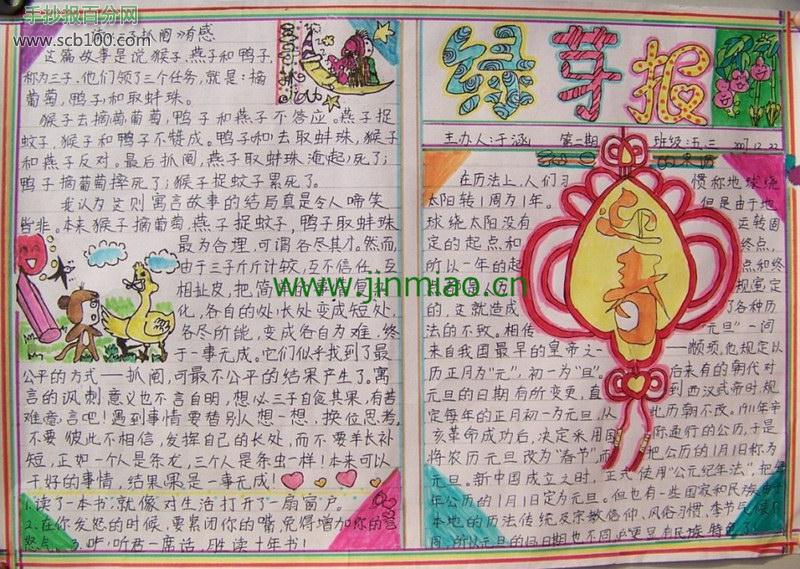 手抄报百分网
www.scb100.com
子抓阄》有感
这篇故事是说猴子,燕子和鸭子,
称为三子。他们领了三个任务,就是:摘
葡萄,鸭子和取蚌珠。
猴子去摘葡萄,鸭子和燕子不答应。燕子捉
蚊子,猴子和鸭子不赞成。鸭子去取蚌珠,猴子
和燕子反对。最后抓阄,燕子取蚌珠淹死了;
鸭子摘葡萄摔死了;猴子捉蚊子累死了。
我认为这则寓言故事的结局真是令人啼笑
皆非。本来猴子摘葡萄,燕子捉蚊子,鸭子取蚌珠
最为合理,可谓各尽其才。然而,
由于三子斤斤计较,互不信任,互
相扯皮,把简
化,各自的处长处变成短处,
各尽所能,变成各自为难,终
于一事无成。它们似乎找到了最
公平的方式——抓阄,可最不公平的结果产生了。寓
言的讽刺意义也不言自明,想必三子自食其果,有苦
难言吧!遇到事情要替别人想一想,换位思考,
不要彼此不相信,发挥自己的长处,而不要羊长补
短,正如一个人是条龙,三个人是条虫一样!本来可以
干好的事情,结果果是一事无成!
1.读了一本书就像对生活打开了一扇窗户。
2.在你发怒的时候,要紧闭你的嘴,免得增加你的
怒气。3.听君一席话,胜读十年书!
www.jinmiao.cn
绿芽报
主办人:于涵 第二期 班级:五.三 2007.12.22
迎春
在历法上,人们习惯称地球绕
太阳转1周为1年。但是由于地
球绕太阳没有运转固
定的起点和终点,
所以一年的起点和终
点都是人规定
的,这就造成了各种历
法的不致。相传"元旦"一词
来自我国最早的皇帝之一——颛顼,他规定以
历正月为"元",初一为"旦"。后来有的朝代对
元旦的日期有所变更,直到西汉武帝时,规
定每年的正月初一为元旦,从此历朝不改。1911年辛
亥革命成功后,决定采用国际通行的公历,于是
将农历元旦改为"春节",而把公历的1月1日称为
元旦。新中国成立之时,正式使用"公元纪年法",把
年公历的1月1日定为元旦。但也有一些国家和民族
本地的历法传统及宗教信仰,风俗习惯,季节气候
同,所以元旦的日期也不同